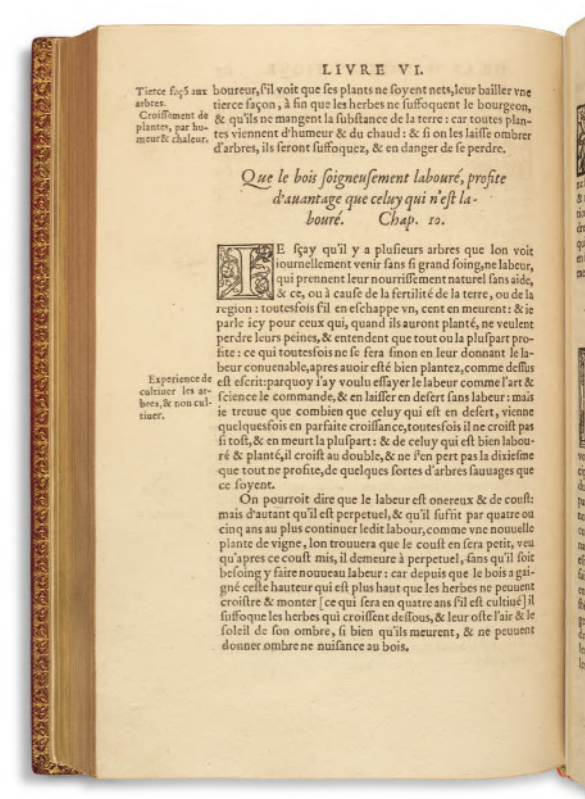 LIVRE VI.
Tierce façõ aux
arbres.
Croissement de
plantes, par hu-
meur & chaleur.
boureur, s'il voit que ses plants ne soyent nets, leur bailler vne
tierce façon, à fin que les herbes ne suffoquent le bourgeon,
& qu'ils ne mangent la substance de la terre : car toutes plan-
tes viennent d'humeur & du chaud : & si on les laisse ombrer
d'arbres, ils seront suffoquez, & en danger de se perdre.
Que le bois soigneusement labouré, profite
d'auantage que celuy qui n'est la-
bouré. Chap. 10.
IE sçay qu'il y a plusieurs arbres que lon voit
iournellement venir sans si grand soing, ne labeur,
qui prennent leur nourrissement naturel sans aide,
& ce, ou à cause de la fertilité de la terre, ou de la
region : toutesfois s'il en eschappe vn, cent en meurent : & ie
parle icy pour ceux qui, quand ils auront planté, ne veulent
perdre leurs peines, & entendent que tout ou la pluspart pro-
fite : ce qui toutesfois ne se fera sinon en leur donnant le la-
beur conuenable, apres auoir esté bien plantez, comme dessus
Experience de
cultiuer les ar-
bres, & non cul-
tiuer.
est escrit : parquoy i'ay voulu essayer le labeur comme l'art &
science le commande, & en laisser en desert sans labeur : mais
ie treuue que combien que celuy qui est en desert, vienne
quelquesfois en parfaite croissance, toutesfois il ne croist pas
si tost, & en meurt la pluspart : & de celuy qui est bien labou-
ré & planté, il croist au double, & ne s'en pert pas la dixiesme
que tout ne profite, de quelques sortes d'arbres sauuages que
ce soyent.
On pourroit dire que le labeur est onereux & de coust:
mais d'autant qu'il est perpetuel, & qu'il sufit par quatre ou
cinq ans au plus continuer ledit labour, comme vne nouuelle
plante de vigne, lon trouuera que le coust en sera petit, veu
qu'apres ce coust mis, il demeure à perpetuel, sans qu'il soit
besoing y faire nouueau labeur : car depuis que le bois a gai-
gné ceste hauteur qui est plus haut que les herbes ne peuuent
croistre & monter [ce qui sera en quatre ans s'il est cultiué] il
suffoque les herbes qui croissent dessous, & leur oste l'air & le
soleil de son ombre, si bien qu'ils meurent, & ne peuuent
donner ombre ne nuisance au bois.